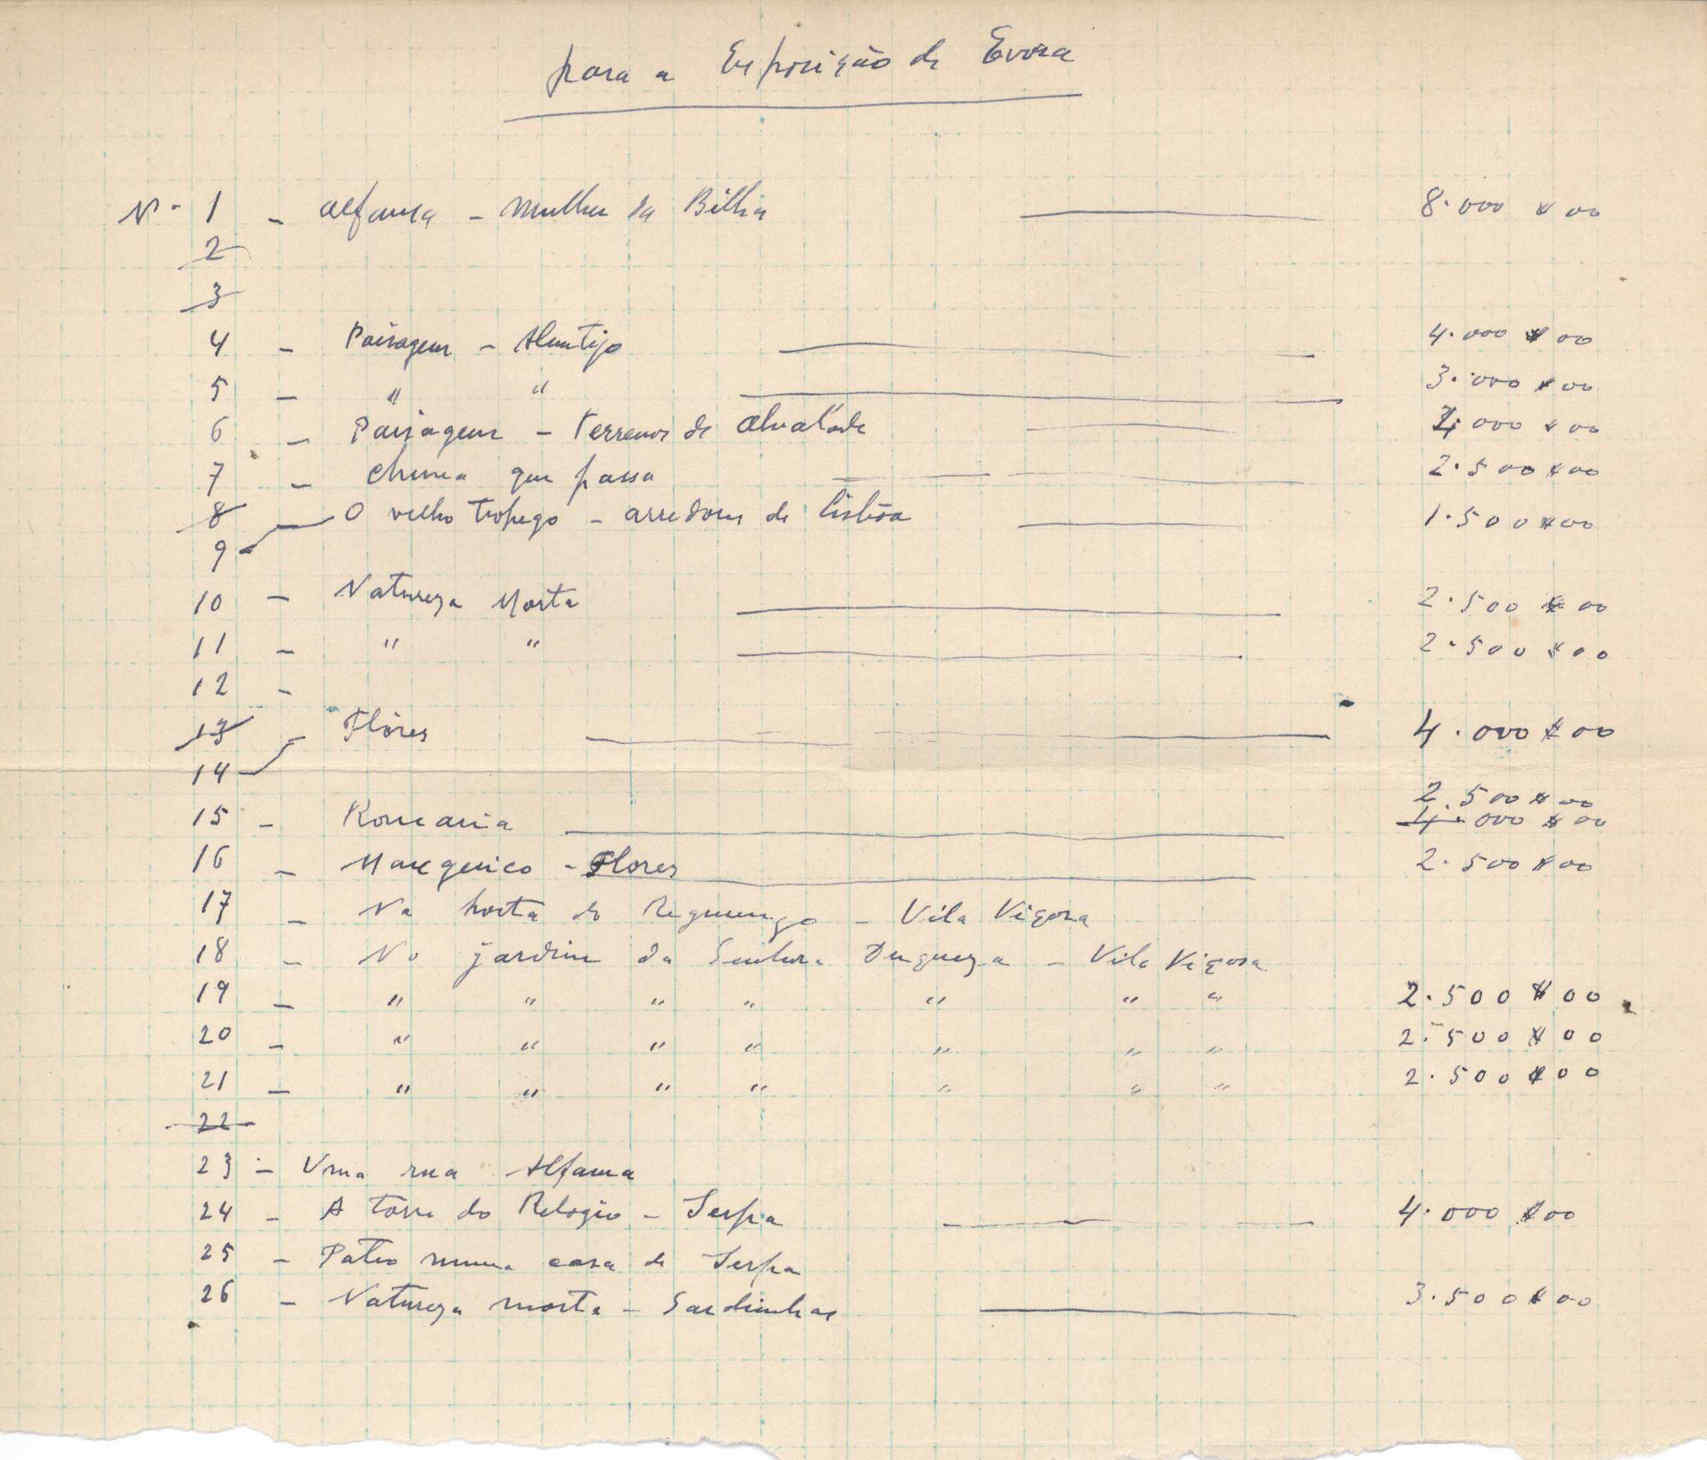 para a Exposição de Evora
Nº 1 - Alfama - Mulher da Bilha 8.000$00
2
3
4 - Paisagem - Alentejo 4.000$00
5 - " " 3.000$00
6 - Paisagem - Terrenos de Alvalade 000$00
7 - Chuva que passa 2.500$00
8 - O velho tropego - arredores de Lisbôa 1.500$00
9
10 - Natureza Morta 2.500$00
11 - " " 2.500$00
12 -
13 - Flôres 4.000$00
14
2.500$00
15 - Romaria 4.000$00
16 - - Flores 2.500$00
17 - Na horta do Reguengo - Vila Viçosa
18 - No jardim da Senhora Duqueza - Vila Viçosa
19 - " " " " " " " 2.500$00
20 - " " " " " " " 2.500$00
21 - " " " " " " " 2.500$00
22
23 - Uma rua Alfama
24 - A tôrre do Relogio - Serpa 4.000$00
25 - Pateo numa casa de Serpa
26 - Natureza morta - Sardinhas 3.500$00